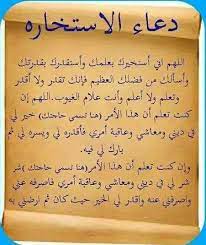 دعاء الاستخاره
اللهم اني أستخيرك بعلمك وأستقدرك بقدرتك
وأسألك من فضلك العظيم فإنك تقدر ولا أقدر
وتعلم ولا أعلم وأنت علام الغيوب.اللهم إن
كنت تعلم أن هذا الأمر(هنا تسمى حاجتك) خير لي
في ديني ومعاشي وعاقبة أمري فأقدره لي ويسره لي ثم
بارك لي فيه.
وإن كنت تعلم أن هذا الأمر(هنا تسمى حاجتك)شر
شر لي في ديني ومعاشي وعاقبة أمري فاصرفه عني
واصرفني عنه واقدر لي الخير حيث كان ثم ارضني به